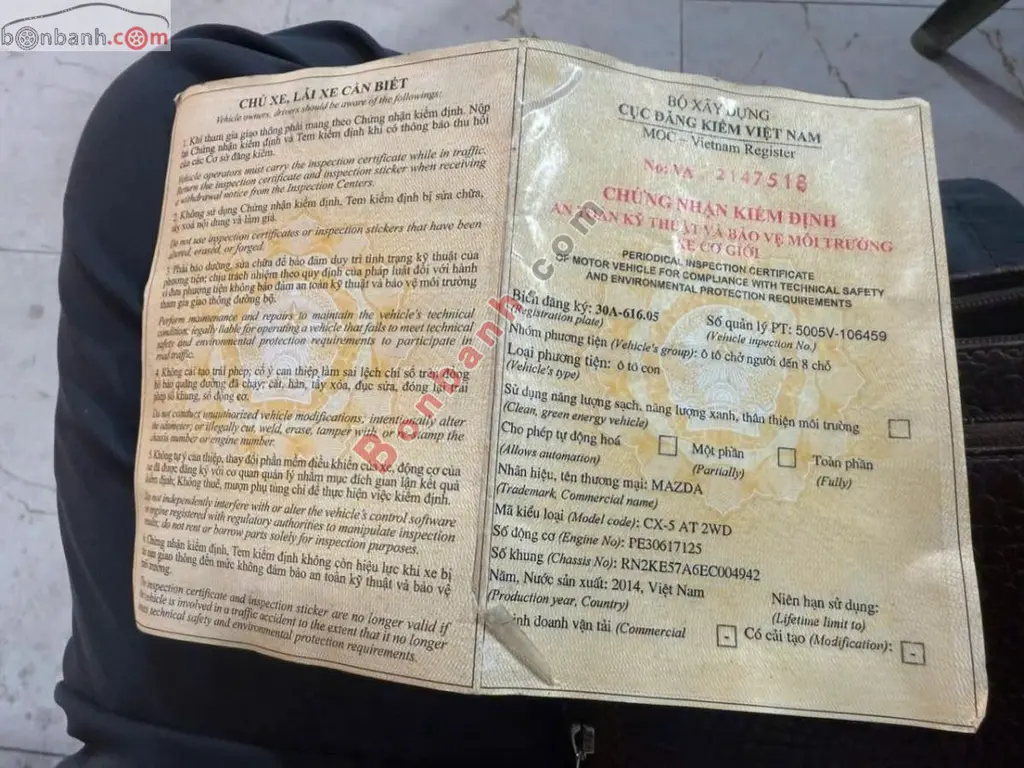 bonbanh.com
CHỦ XE, LÁI XE CẦN BIẾT
Vehicle owners, drivers should be aware of the followings:
1. Khi tham gia giao thông phải mang theo Chứng nhận kiểm định. Nộp
lại Chứng nhận kiểm định và Tem kiểm định khi có thông báo thu hồi
của các Cơ sở đăng kiểm.
Vehicle operators must carry the inspection certificate while in traffic.
Return the inspection certificate and inspection sticker when receiving
a withdrawal notice from the Inspection Centers.
2. Không sử dụng Chứng nhận kiểm định, Tem kiểm định bị sửa chữa,
tẩy xoá nội dung và làm giả.
Do not use inspection certificates or inspection stickers that have been
altered, erased, or forged.
3. Phải bảo dưỡng, sửa chữa để bảo đảm duy trì tình trạng kỹ thuật của
phương tiện; chịu trách nhiệm theo quy định của pháp luật đối với hành
vi đưa phương tiện không bảo đảm an toàn kỹ thuật và bảo vệ môi trường
tham gia giao thông đường bộ.
Perform maintenance and repairs to maintain the vehicle's technical
condition; legally liable for operating a vehicle that fails to meet technical
safety and environmental protection requirements to participate in
road traffic.
4. Không cải tạo trái phép; cố ý can thiệp làm sai lệch chỉ số trên đồng
hồ báo quãng đường đã chạy; cắt, hàn, tẩy xóa, đục sửa, đóng lại trái
phép số khung, số động cơ.
Do not conduct unauthorized vehicle modifications; intentionally alter
the odometer; or illegally cut, weld, erase, tamper with or re-stamp the
chassis number or engine number.
5. Không tự ý can thiệp, thay đổi phần mềm điều khiển của xe, động cơ của
xe đã được đăng ký với cơ quan quản lý nhằm mục đích gian lận kết quả
kiểm định; Không thuê, mượn phụ tùng chỉ để thực hiện việc kiểm định.
Do not independently interfere with or alter the vehicle's control software
or engine registered with regulatory authorities to manipulate inspection
results; do not rent or borrow parts solely for inspection purposes.
6. Chứng nhận kiểm định, Tem kiểm định không còn hiệu lực khi xe bị
tai nạn giao thông đến mức không đảm bảo an toàn kỹ thuật và bảo vệ
môi trường.
The inspection certificate and inspection sticker are no longer valid if
the vehicle is involved in a traffic accident to the extent that it no longer
meets technical safety and environmental protection requirements.
BỘ XÂY DỰNG
CỤC ĐĂNG KIỂM VIỆT NAM
MOC – Vietnam Register
No: VA 2147518
CHỨNG NHẬN KIỂM ĐỊNH
AN TOÀN KỸ THUẬT VÀ BẢO VỆ MÔI TRƯỜNG
XE CƠ GIỚI
PERIODICAL INSPECTION CERTIFICATE
OF MOTOR VEHICLE FOR COMPLIANCE WITH TECHNICAL SAFETY
AND ENVIRONMENTAL PROTECTION REQUIREMENTS
Biển đăng ký: 30A-616.05 Số quản lý PT: 5005V-106459
(Registration plate) (Vehicle inspection No.)
Nhóm phương tiện (Vehicle's group): ô tô chở người đến 8 chỗ
Loại phương tiện: ô tô con
(Vehicle's type)
Sử dụng năng lượng sạch, năng lượng xanh, thân thiện môi trường
(Clean, green energy vehicle)
Cho phép tự động hoá Một phần Toàn phần
(Allows automation) (Partially) (Fully)
Nhãn hiệu, tên thương mại: MAZDA
(Trademark, Commercial name)
Mã kiểu loại (Model code): CX-5 AT 2WD
Số động cơ (Engine No): PE30617125
Số khung (Chassis No): RN2KE57A6EC004942
Năm, Nước sản xuất: 2014, Việt Nam Niên hạn sử dụng:
(Production year, Country) (Lifetime limit to)
inh doanh vận tải (Commercial - Có cải tạo (Modification): -
Bonbanh.com